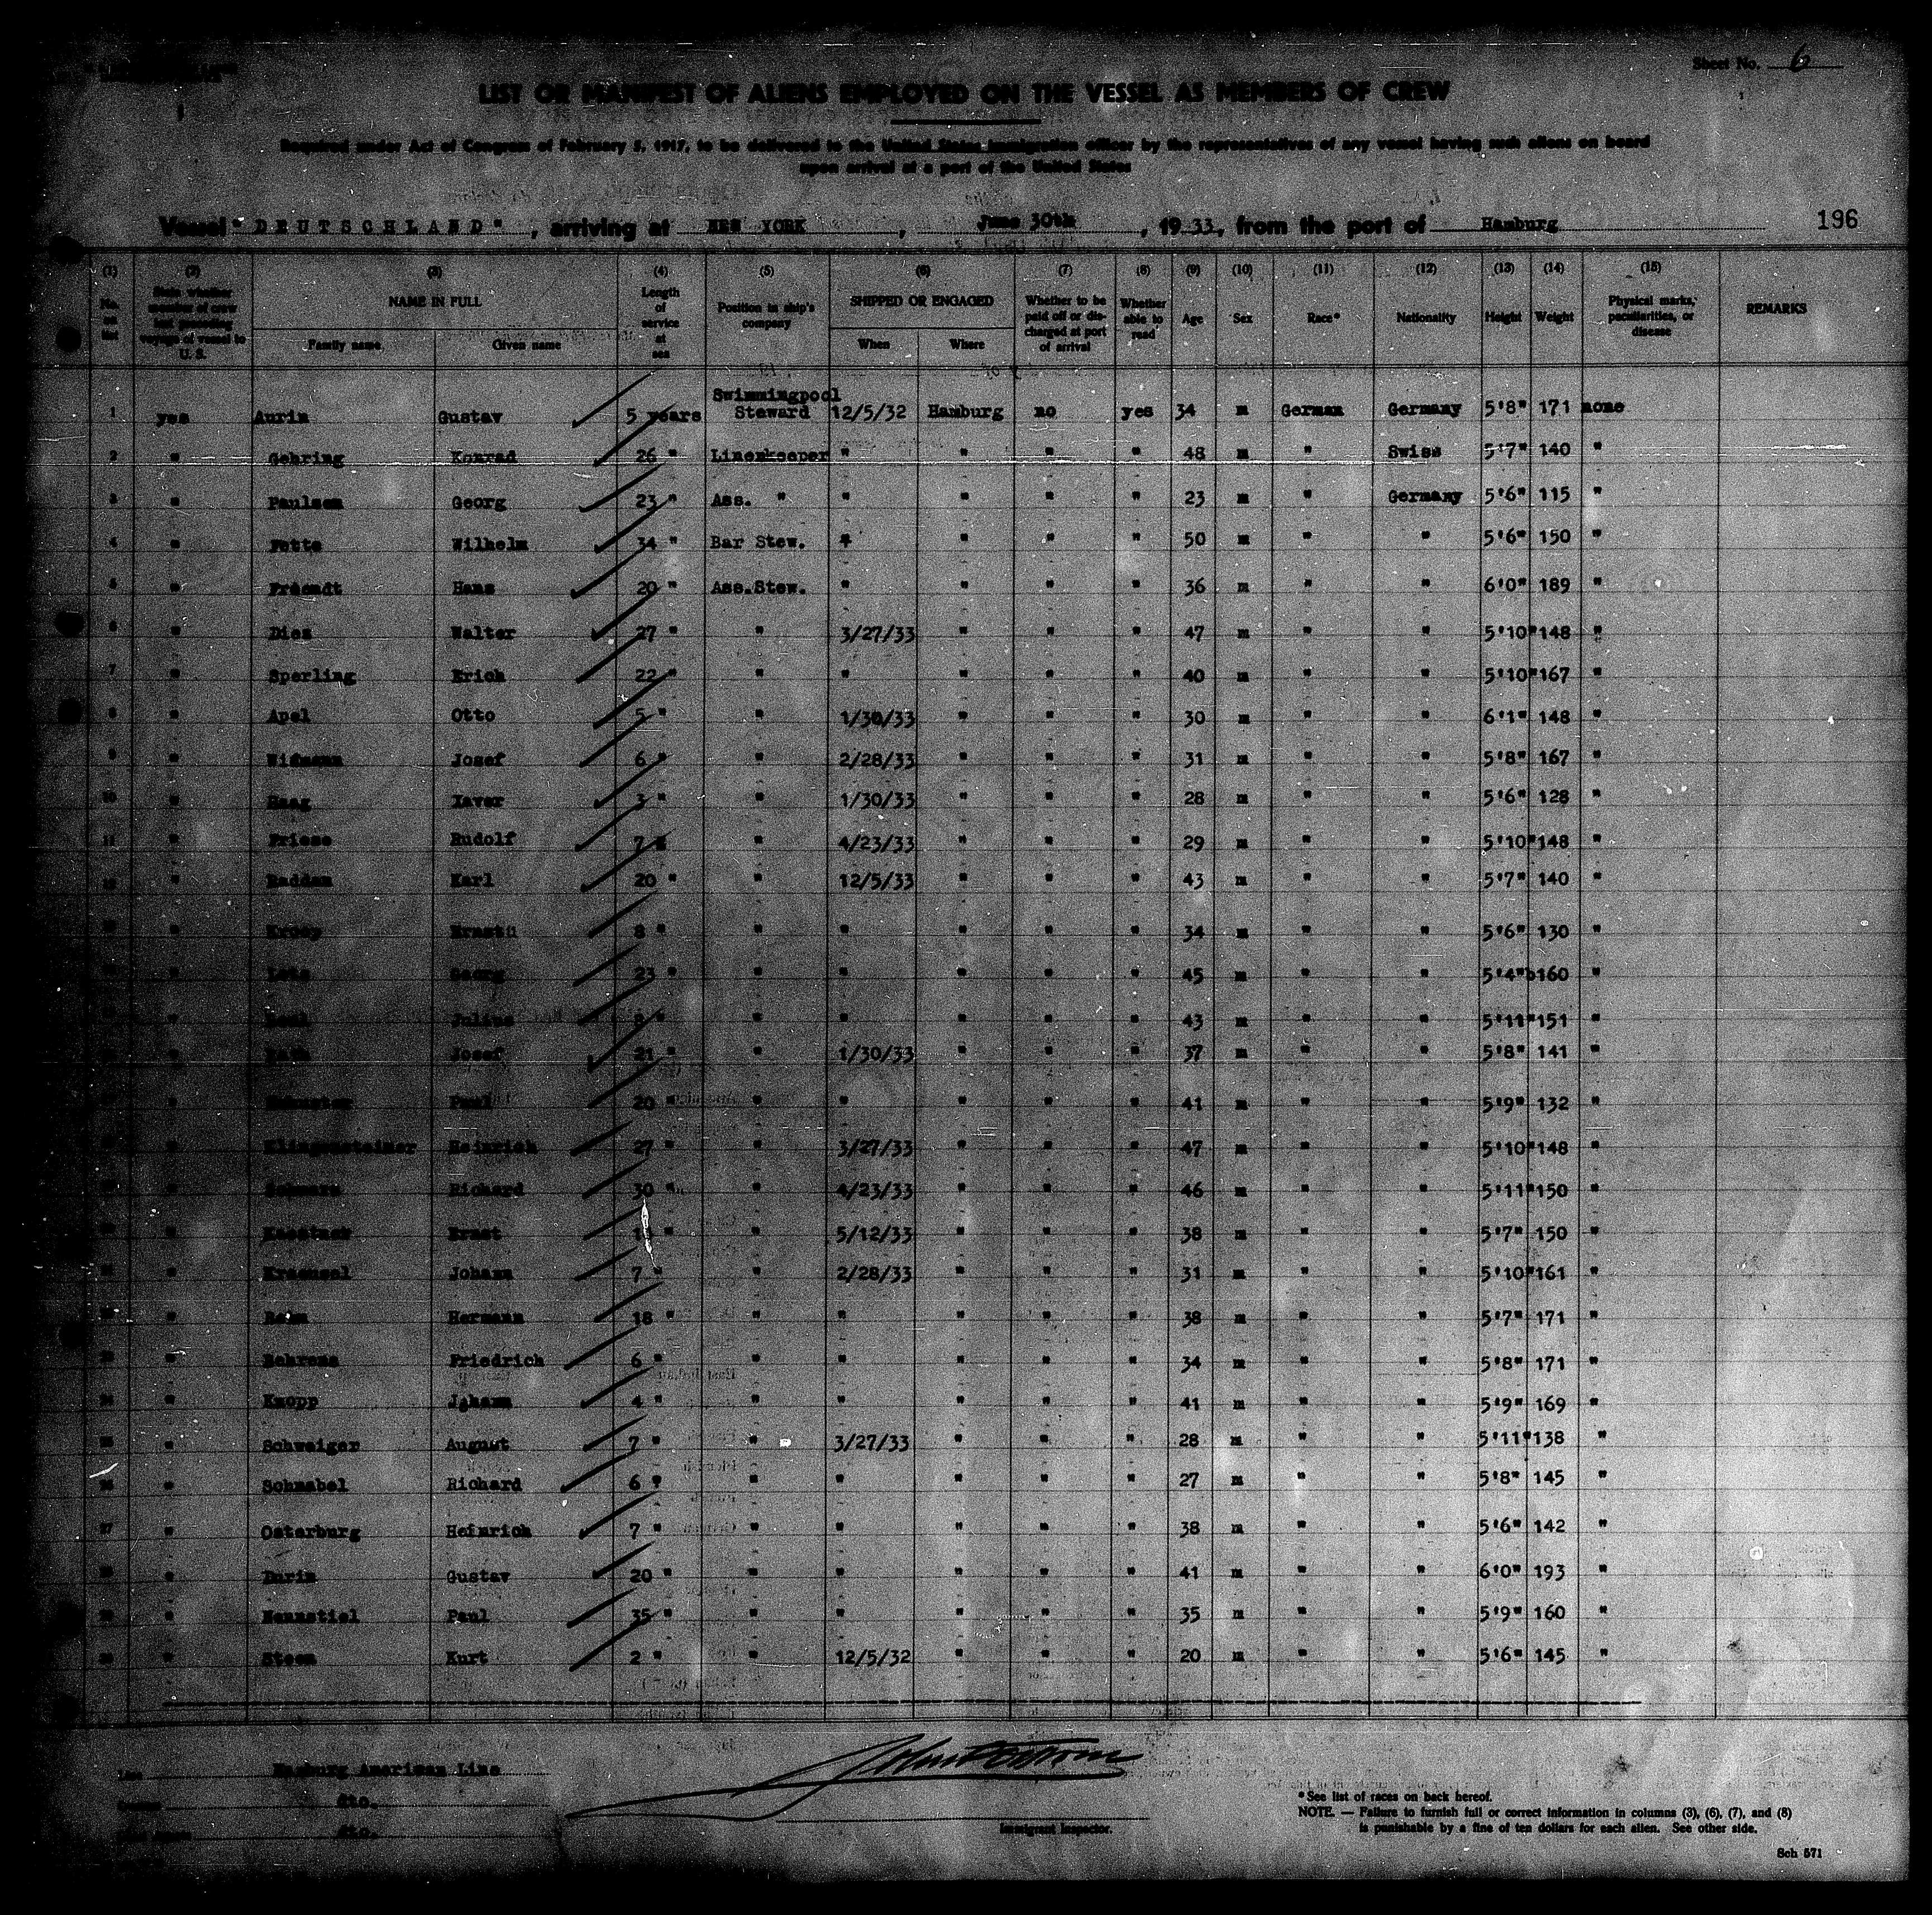 Sheet No. 6
LIST OR MANIFEST OF ALIENS EMPLOYED ON THE VESSEL AS MEMBERS OF CREW
Required under Act of Congress of February 5, 1917, to be delivered to the United States immigration officer by the representatives of any vessel having such aliens on board
upon arrival at a port of the United States
Vessel "DEUTSCHLAND", arriving at NEW YORK, June 30th, 1933, from the port of Hamburg 196
(1) (2) (3) (4) (5) (6) (7) (8) (9) (10) (11) (12) (13) (14) (15)
No. on list State whether member of crew last preceding voyage of vessel to U. S. NAME IN FULL Family name Given name Length of service at sea Position in ship's company SHIPPED OR ENGAGED When Where Whether to be paid off or discharged at port of arrival Whether able to read Age Sex Race* Nationality Height Weight Physical marks, peculiarities, or disease REMARKS
1 yes Aurin Gustav 5 years Swimmingpool Steward 12/5/32 Hamburg no yes 34 m German Germany 5'8" 171 none
2 " Gehring Konrad 26 " Linenkeeper " " " " 48 m " Swiss 5'7" 140 "
3 " Paulsen Georg 23 " Ass. " " " " " 23 m " Germany 5'6" 115 "
4 " Wilhelm 34 " Bar Stew. " " " " 50 m " " 5'6" 150 "
5 " Hans 20 " Ass.Stew. " " " " 36 m " " 6'0" 189 "
6 " Dies Walter 27 " " 3/27/33 " " " 47 m " " 5'10" 148 "
7 " Sperling Erich 22 " " " " " " 40 m " " 5'10" 167 "
8 " Apel Otto 5 " " 1/30/33 " " " 30 m " " 6'1" 148 "
9 " Josef 6 " " 2/28/33 " " " 31 m " " 5'8" 167 "
10 " Haag Xaver 3 " " 1/30/33 " " " 28 m " " 5'6" 128 "
11 " Friese Rudolf 7 " " 4/23/33 " " " 29 m " " 5'10" 148 "
12 " Karl 20 " " 12/5/33 " " " 43 m " " 5'7" 140 "
" Ernst 8 " " " " " " 34 m " " 5'6" 130 "
" Georg 23 " " " " " " 45 m " " 5'4" 160 "
" Julius " " " " " 43 m " " 5'11" 151 "
" Josef 21 " " 1/30/33 " " " 37 m " " 5'8" 141 "
" Paul 20 " " " " " " 41 m " " 5'9" 132 "
" Klingensteiner Heinrich 27 " " 3/27/33 " " " 47 m " " 5'10" 148 "
" Richard 30 " " 4/23/33 " " " 46 m " " 5'11" 150 "
" Ernst " " 5/12/33 " " " 38 m " " 5'7" 150 "
" Johann 7 " " 2/28/33 " " " 31 m " " 5'10" 161 "
" Hermann 18 " " " " " " 38 m " " 5'7" 171 "
" Behrens Friedrich 6 " " " " " " 34 m " " 5'8" 171 "
24 " Knopp Johann 4 " " " " " " 41 m " " 5'9" 169 "
25 " Schweiger August 7 " " 3/27/33 " " " 28 m " " 5'11" 138 "
26 " Schnabel Richard 6 " " " " " " 27 m " " 5'8" 145 "
27 " Osterburg Heinrich 7 " " " " " " 38 m " " 5'6" 142 "
28 " Durin Gustav 20 " " " " " " 41 m " " 6'0" 193 "
29 " Nennstiel Paul 35 " " " " " " 35 m " " 5'9" 160 "
30 " Steen Kurt 2 " " 12/5/32 " " " 20 m " " 5'6" 145 "
Line Hamburg American Line
dto.
dto.
Immigrant Inspector.
* See list of races on back hereof.
NOTE. — Failure to furnish full or correct information in columns (3), (6), (7), and (8)
is punishable by a fine of ten dollars for each alien. See other side.
Sch 571